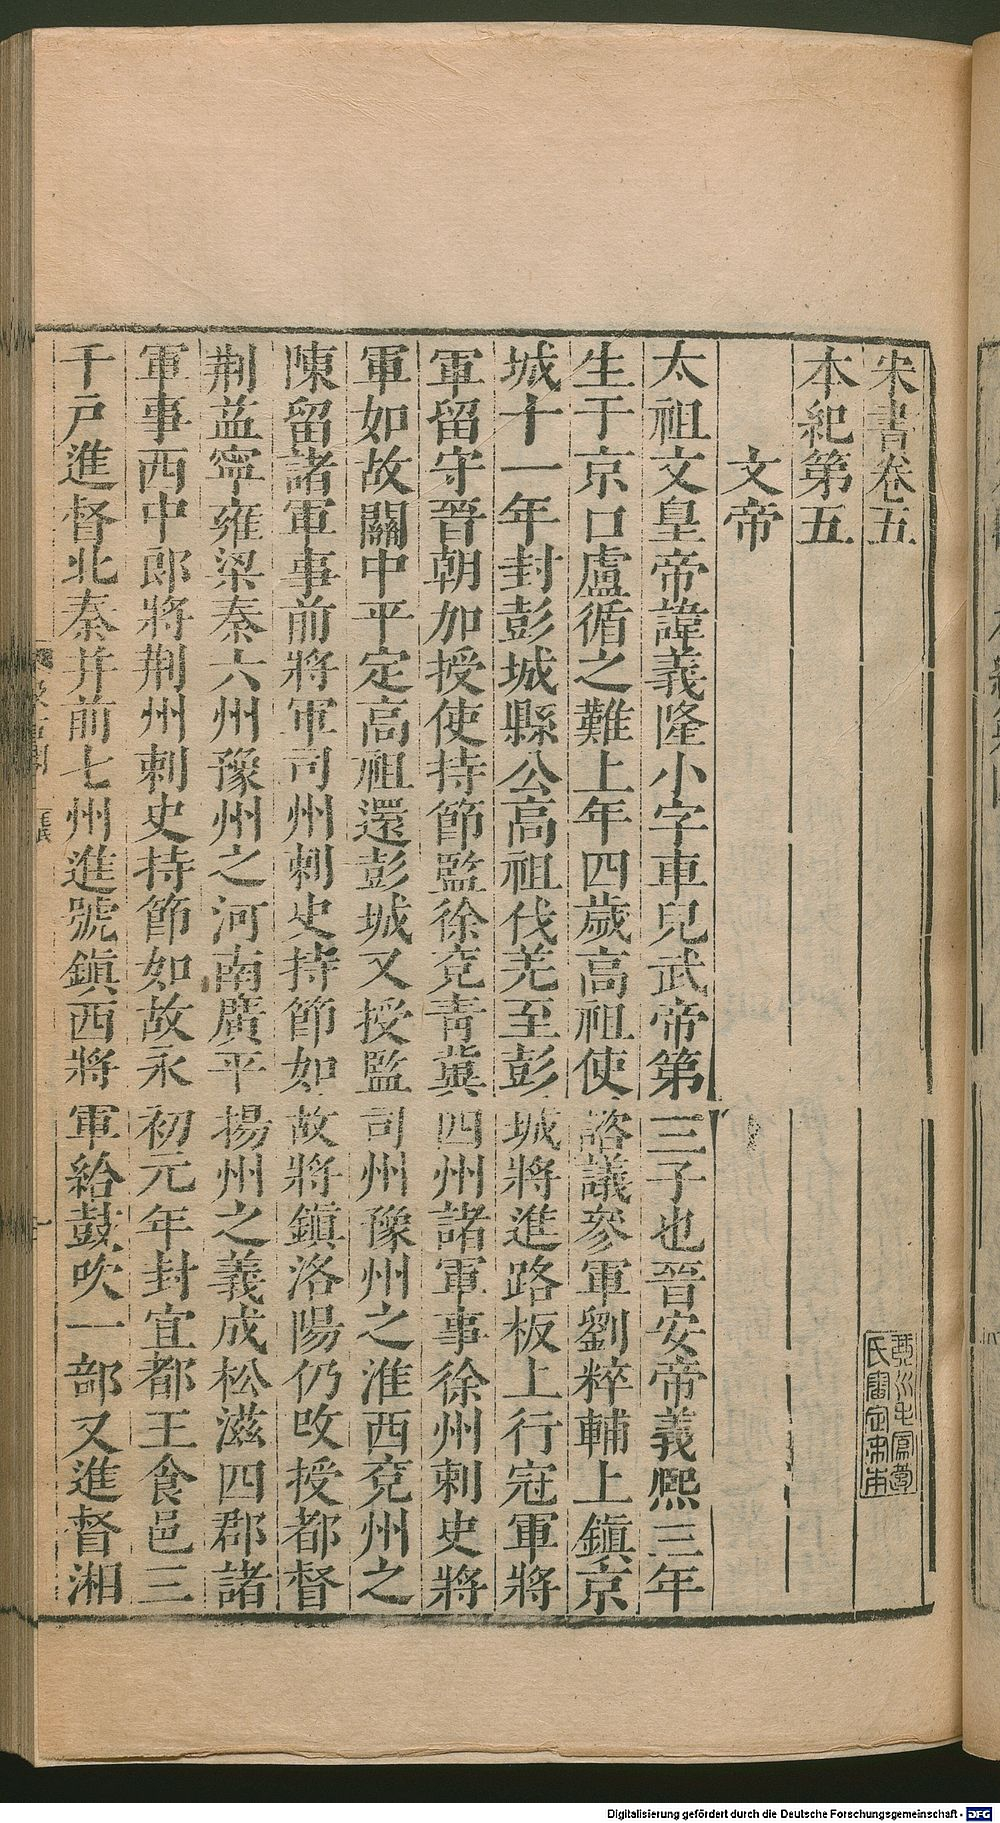 宋書卷五
本紀第五
文帝
太祖文皇帝諱義隆小字車兒武帝第三子也晉安帝義熙三年
生于京口盧循之難上年四歲高祖使諮議參軍劉粹輔上鎮京
城十一年封彭城縣公高祖伐羌至彭城將進路板上行冠軍將
軍留守晉朝加授使持節監徐兗青冀四州諸軍事徐州刺史將
軍如故關中平定高祖還彭城又授監司州豫州之淮西兗州之
陳留諸軍事前將軍司州刺史持節如故將鎮洛陽仍改授都督
荆益寧雍梁秦六州豫州之河南廣平揚州之義成松滋四郡諸
軍事西中郎將荆州刺史持節如故永初元年封宜都王食邑三
千戶進督北秦并前七州進號鎮西將軍給鼓吹一部又進督湘
Digitalisierung gefördert durch die Deutsche Forschungsgemeinschaft - DFG